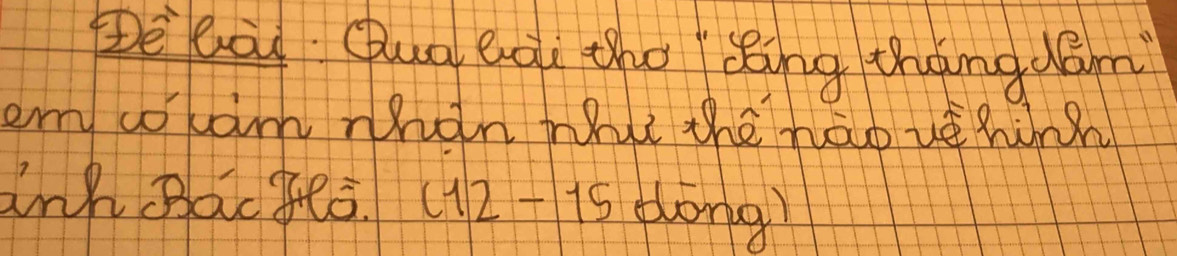 Đề bài: Qua bài thơ "Sáng tháng Năm"
em có cảm nhận như thế nào về hình
ảnh Bác Hồ. (12 - 15 dòng)